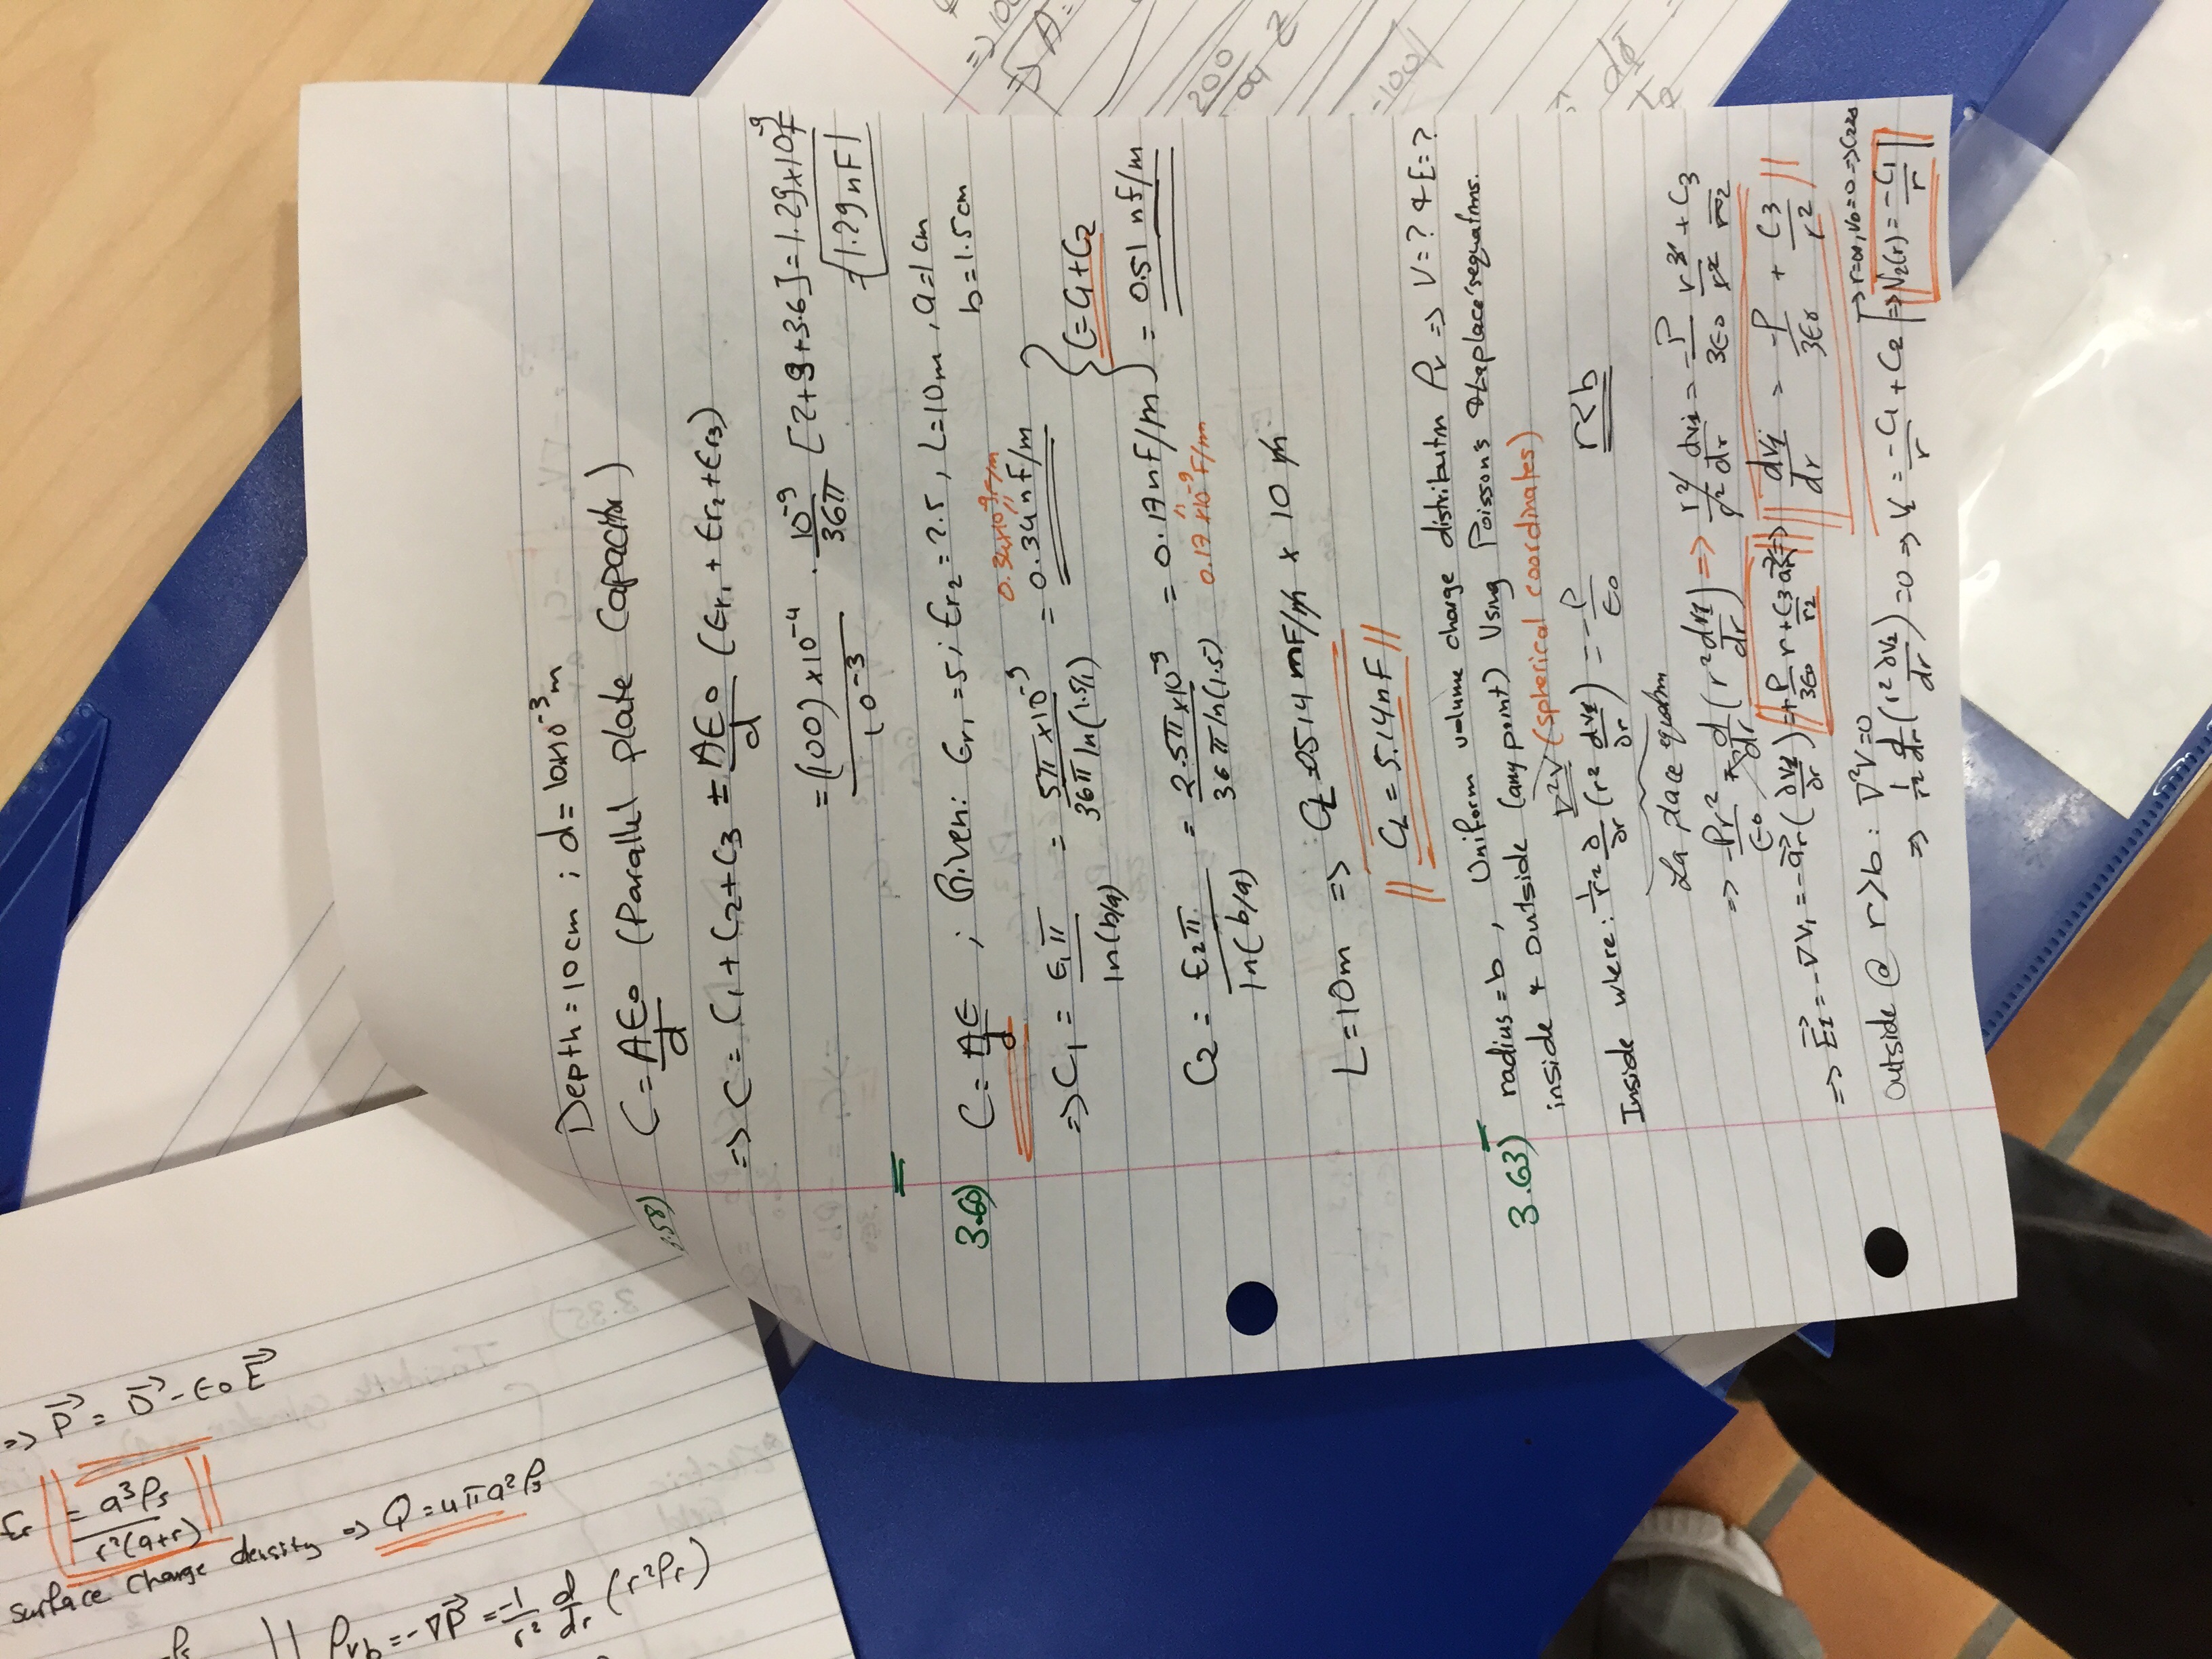 Depth = 10cm ; d = 10x10⁻³m
.58)
C = Aϵ₀/d (Parallel plate Capacitor)
=> C = C₁ + C₂ + C₃ = Aϵ₀/d (ϵr₁ + ϵr₂ + ϵr₃)
= (100)x10⁻⁴/10⁻³ · 10⁻⁹/36π [2+9+3.6] = 1.29x10⁻⁹F
= 1.29nF
3.60) C = Aϵ/d ; Given: ϵr₁ = 5 ; ϵr₂ = 2.5, L = 10m, a = 1cm
b = 1.5cm
0.34x10⁻⁹F/m
=> C₁ = ϵ₁π/ln(b/a) = 5π x10⁻⁹/36π ln(1.5/1) = 0.34nF/m
C = C₁+C₂
C₂ = ϵ₂π/ln(b/a) = 2.5π x10⁻⁹/36π ln(1.5) = 0.17nF/m = 0.51nF/m
0.17x10⁻⁹F/m
L = 10m => 0.514 mF/m x 10 m
C_L = 5.14nF
3.63) radius = b, Uniform volume charge distributn ρv => V=? & E=?
inside & outside (any point) Using Poisson's & Laplace's equatns.
∇²V (spherical coordinates)
Inside where: 1/r² ∂/∂r (r² ∂V₁/∂r) = -ρ/ϵ₀ r<b
La place eqnatn
=> -ρr²/ϵ₀ = d/dr (r² dV₁/dr) => r²/r² dV₁/dr = -ρ/3ϵ₀ r³/r² + C₃/r²
=> E₁ = -∇V₁ = -ar (∂V₁/∂r) = +ρ/3ϵ₀ r + C₃/r² ar => dV₁/dr = -ρ/3ϵ₀ r + C₃/r²
Outside @ r>b : ∇²V=0
=> r=∞, V₀=0 => C₂=0
=> 1/r² d/dr (r² ∂V₂/dr) = 0 => V₂ = -C₁/r + C₂ => V₂(r) = -C₁/r
=> P = D - ϵ₀E
= a³ρs/r²(a+r)
surface charge density => Q = 4πa²ρs
ρvb = -∇P = -1/r² d/dr (r²Pr)